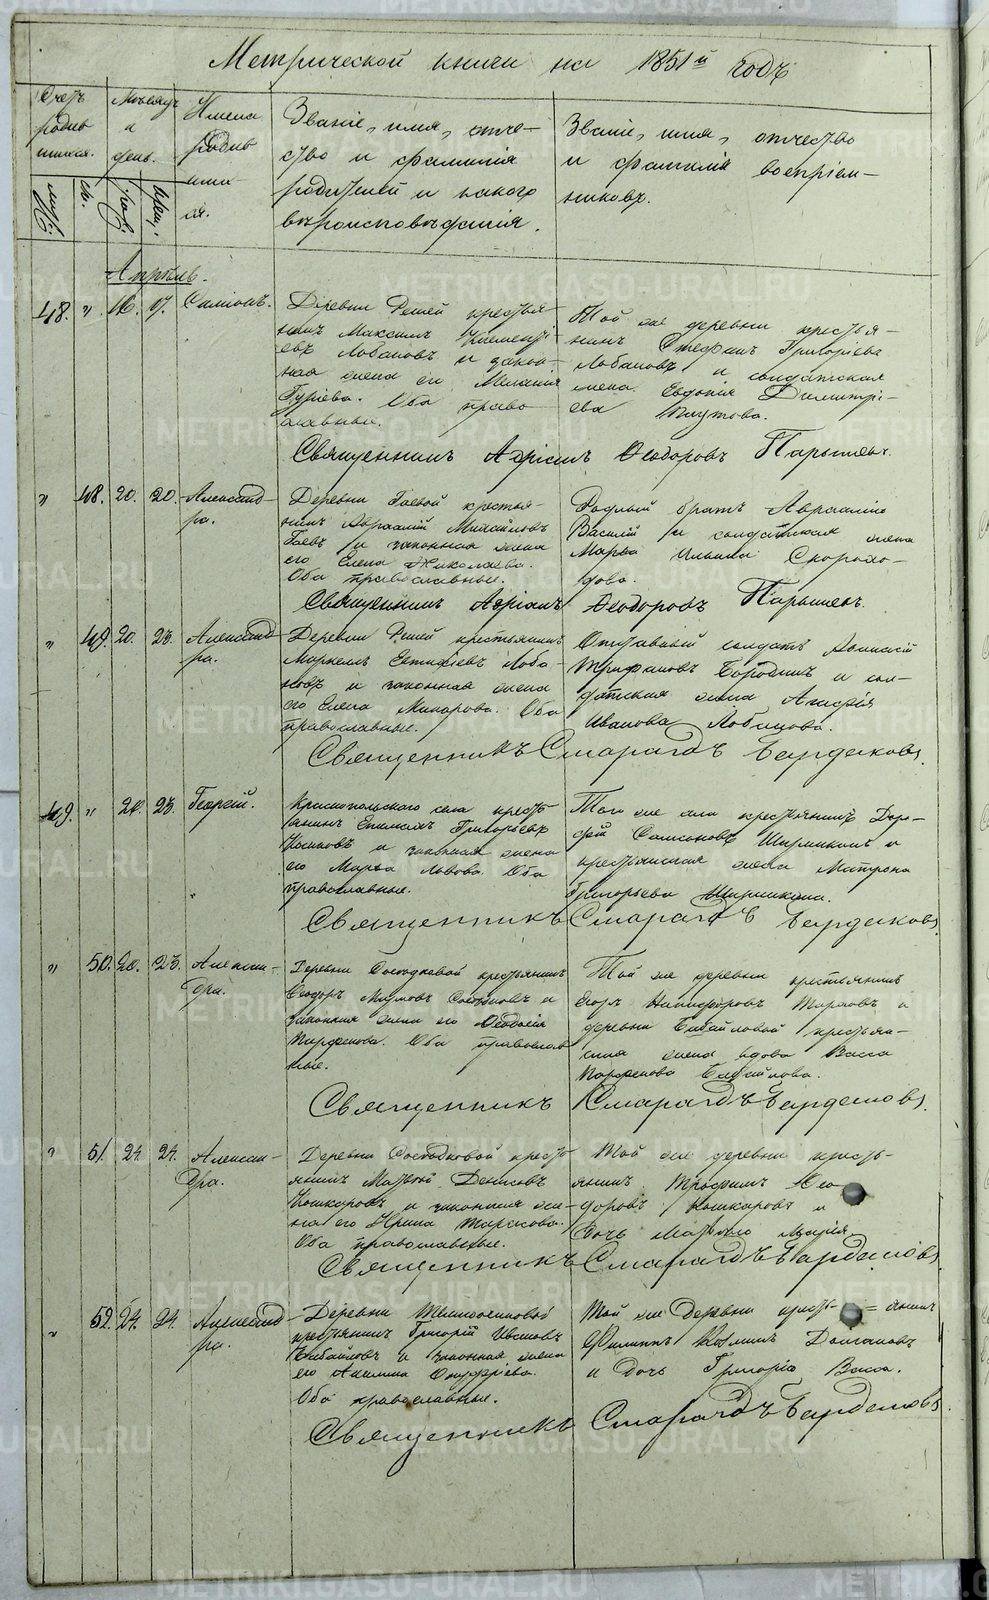 Метрической книги на 1851й годъ
Счетъ родив шихся.
муж. жен.
Месяцъ и день.
рожд. крещ.
Имена родив шихся.
Званіе, имя, отче-
ство и фамилія
родителей и какого
вѣроисповѣданія.
Званіе, имя, отчество
и фамилія воспріем-
никовъ.
Апрѣль.
48. " 16. 17. Симіонъ.
Деревни Решей крестья
нинъ Максимъ
евъ Лобановъ и закон-
ная жена его Меланія
Гуріева. Оба право
славные.
Той же деревни крестья-
нинъ Стефанъ Григоріевъ
Лобановъ и солдатская
жена Евдокія Димитрі-
ева Паутова.
Священникъ Адріанъ Ѳеодоровъ Парышевъ.
" 48. 20. 20. Александ-
ра.
Деревни Гаевой крестья-
нинъ Авраамій Михайловъ
Гаевъ и законная жена
его Елена Николаева.
Оба православные.
Родный братъ Авраамію
Василій и солдатская жена
Марѳа Ильина Скоро
дова.
Священникъ Адріанъ Ѳеодоровъ Парышевъ.
" 49. 20. 23. Александ-
ра.
Деревни Решей крестьянинъ
Маркелъ Евтифіевъ Лоба-
новъ и законная жена
его Елена Макарова. Оба
православные.
Отставной солдатъ Аѳанасій
Трифановъ Бородинъ и сол-
датская жена Агафія
Иванова Лобанова.
Священникъ Смарагдъ Бердюковъ.
49. " 20. 23. Георгій.
Краснопольского села кресть
янинъ Григорьевъ
и законная жена
его Марѳа Львова. Оба
православные.
Того же села крестьянинъ Доро-
фей Самсоновъ Ширинкинъ и
крестьянская жена Матрона
Григорьева Ширинкина.
Священникъ Смарагдъ Бердюковъ.
" 50. 20. 23. Алексан-
дра.
Деревни крестьянинъ
Ѳеодоръ Наумовъ и
законная жена его Ѳеодосія
Парфенова. Оба православ
ные.
Той же деревни крестьянинъ
Егоръ Никифоровъ и
деревни Бабайловой крестья-
нина жена вдова Васса
Парфенова Бабайлова.
Священникъ Смарагдъ Бердюковъ.
" 51. 24. 24. Алексан-
дра.
Деревни кресть
янинъ Матвей Денисовъ
Кошкаровъ и законная же-
на его Ирина Тарасова.
Оба православные.
Той же деревни кресть-
янинъ Трофимъ Ѳео
доровъ Кошкаровъ и
дочь Марія.
Священникъ Смарагдъ Бердюковъ.
" 52. 24. 24. Александ-
ра.
Деревни
крестьянинъ Григорій Ивановъ
Бабайловъ и законная жена
его Акилина Онуфріева.
Оба православные.
Той же деревни кресть=янинъ
Филиппъ Козминъ Долгановъ
и дочь Григорія Васса.
Священникъ Смарагдъ Бердюковъ.
METRIKI.GASO-URAL.RU